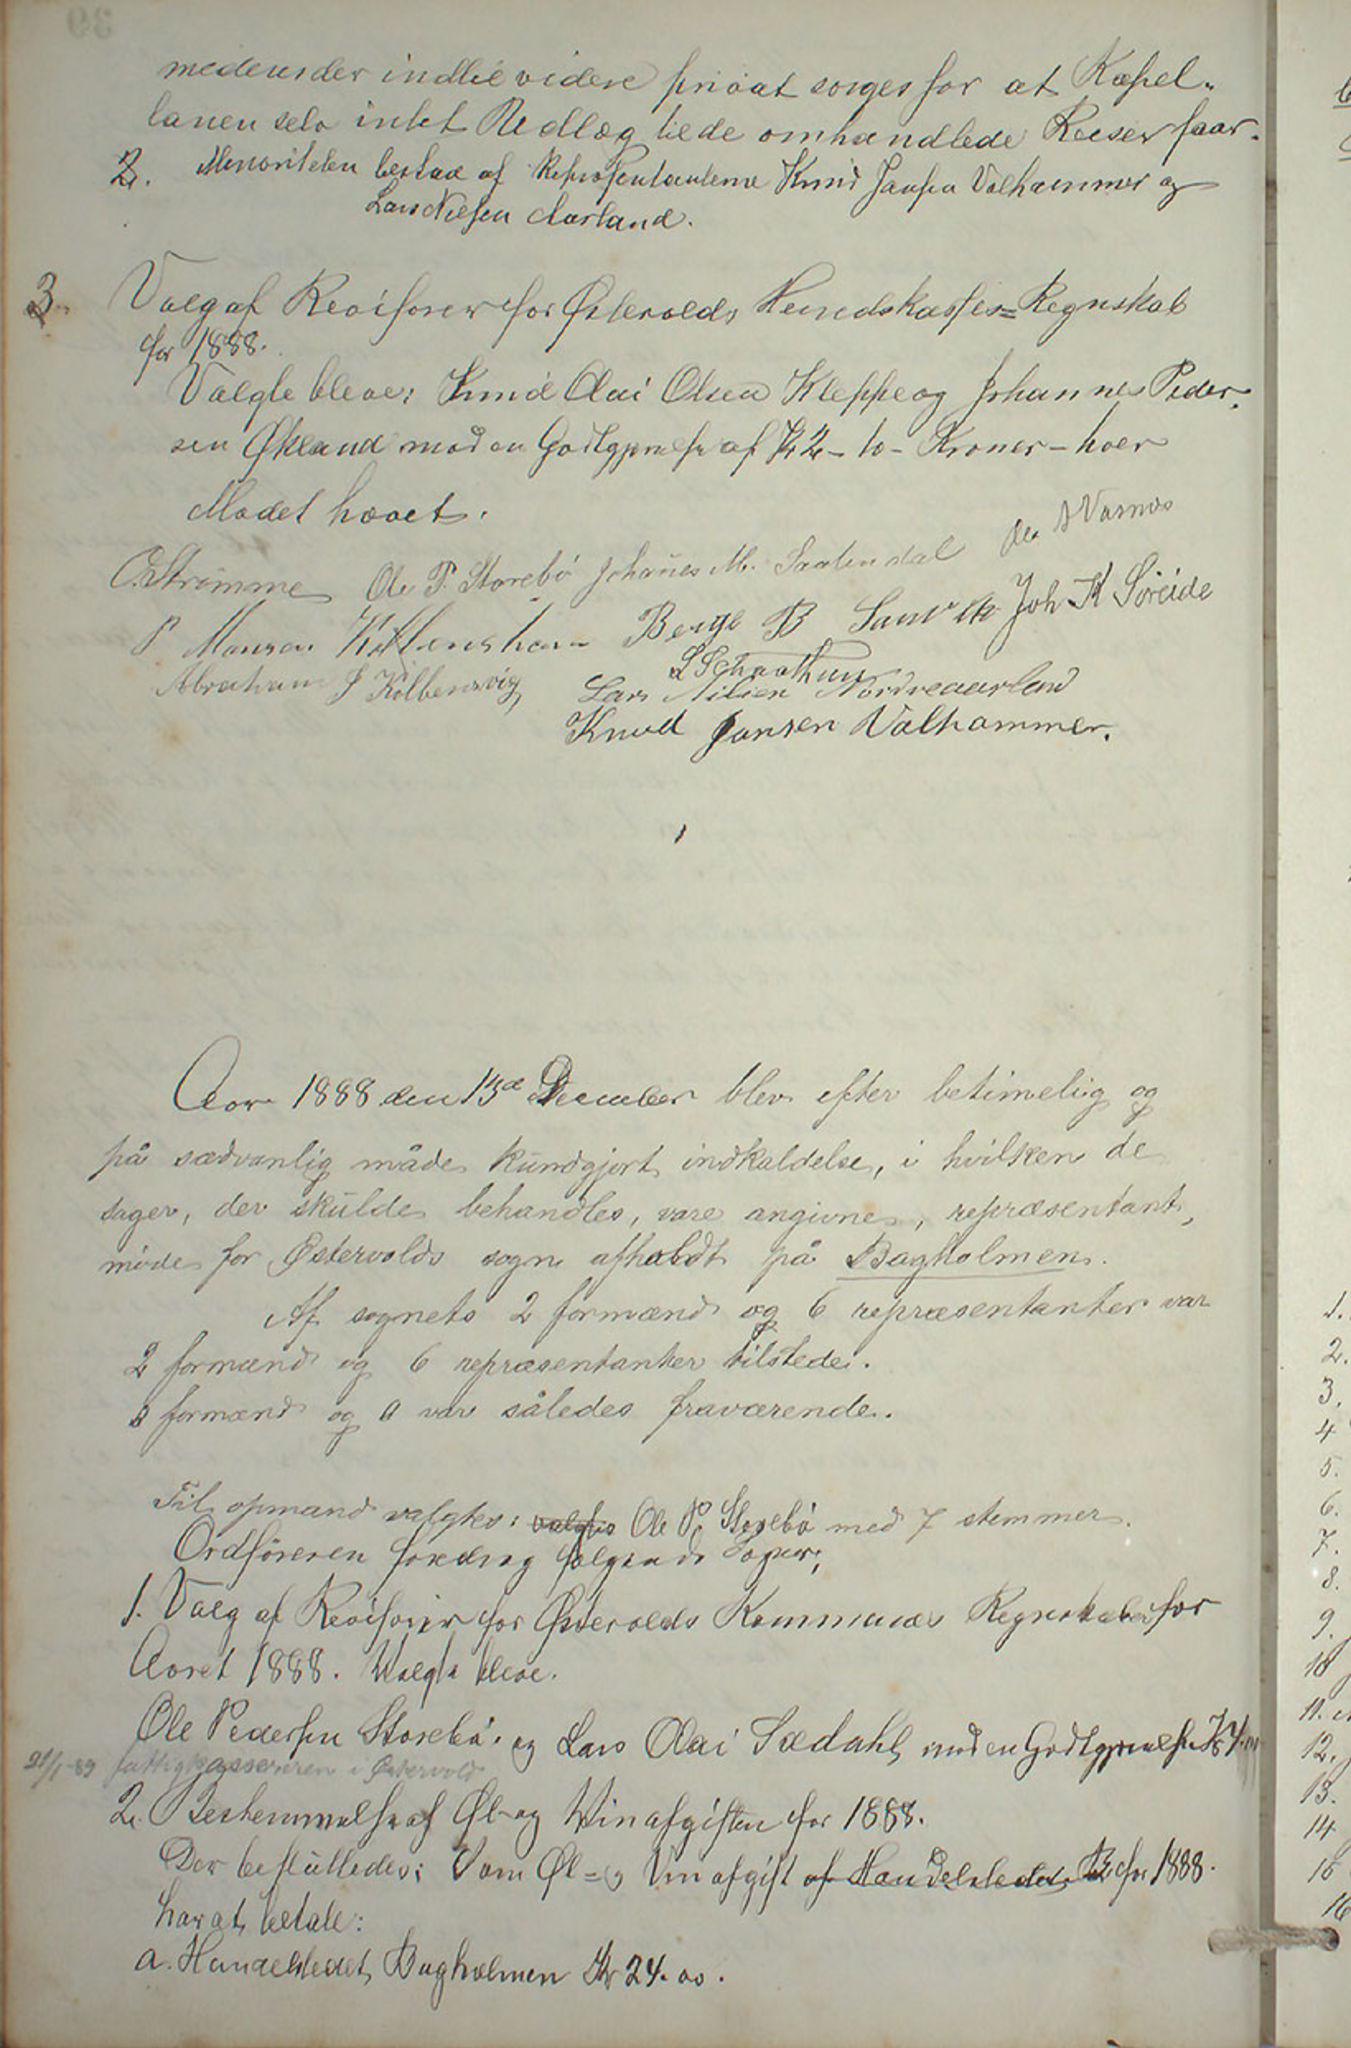 medens der indtil videre privat sørges for at Kapel-
lanen selv intet Udlæg til de omhandlede Reiser faar.
2. Minoriteten bestod af Repræsentanterne Knud Jansen Valhammer og
Lars Nielsen Aarland.
3. Valg af Revisorer for Østervolds Herredskasses=Regnskab
for 1888.
Valgte bleve: Knud Olai Olsen Kleppe og Johannes Peder-
sen Økland mod en Godtgjørelse af Kr 2 - to - Kroner - hver
Mødet hævet.
O. Strømme Ole P. Storebø Johanes M. Saalendal Ole A Varnes
P Monsen Kolbenshavn Berge B Sandvik Joh K Søreide
Abraham J Kolbensvig L Schaathun
Lars Nilsen Nordreaarland
Knud Jansen Valhammer.
Aar 1888 den 13de December blev efter betimelig og
på sædvanlig måde kundgjort indkaldelse, i hvilken de
sager, der skulde behandles, vare angivne, repræsentant-
møde for Østervolds sogn afholdt på Bagholmen.
Af sognets 2 formænd og 6 repræsentanter var
2 formænd og 6 repræsentanter tilstede.
0 formænd og 0 var således fraværende.
Til opmand valgtes: valgtes Ole P. Storebø med 7 stemmer.
Ordføreren foredrog følgende Sager;
1. Valg af Revisorer for Østervolds Kommunes Regnskaber for
Aaret 1888. Valgte bleve.
Ole Pedersen Storebø og Lars Olai Sædahl mod en Godtgjørelse Kr 4.00
21/1-89 fattigkassereren i Østervold
2. Bestemmelse af Øl- og Vinafgiften for 1888.
Der besluttedes: Som Øl= og Vinafgift af Handelsstedet for 1888.
har at betale:
a. Handelsstedet Bagholmen Kr 24.00.
39
1.
2.
3.
4
5.
6.
7.
8.
9.
10
11.
12.
13.
14
15
16